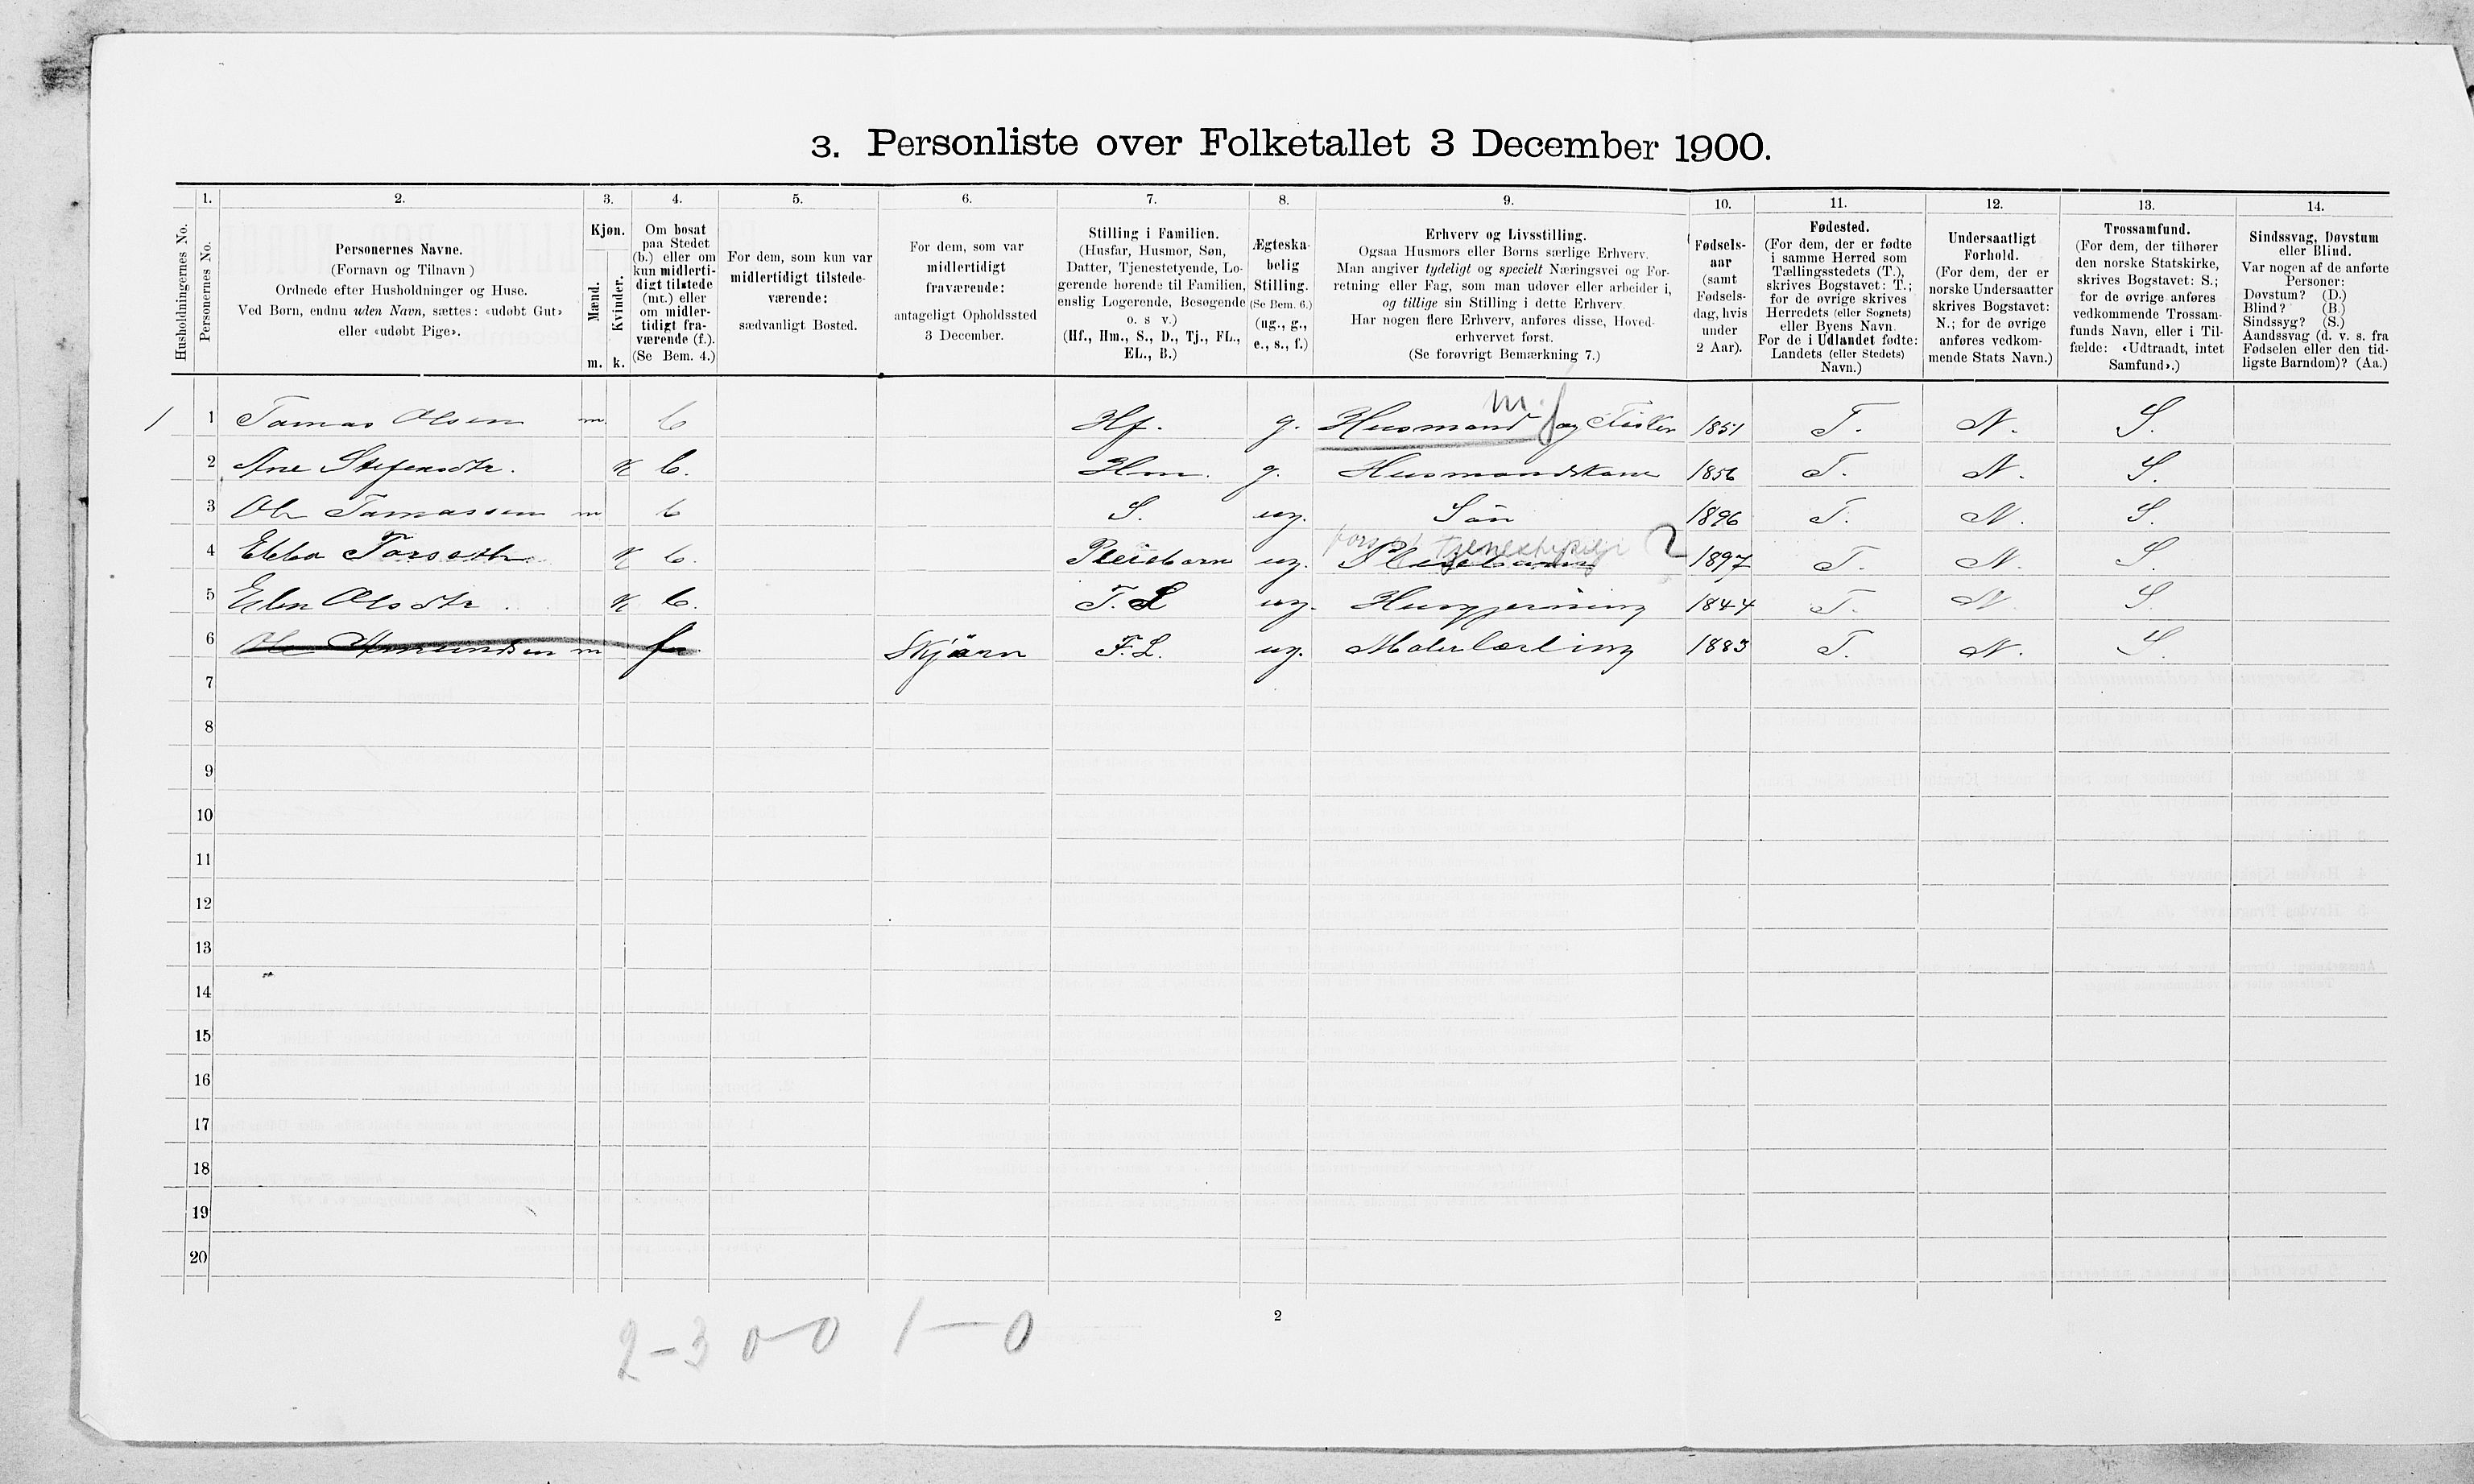 3. Personliste over Folketallet 3 December 1900.
1. 2. 3. 4. 5. 6. 7. 8. 9. 10. 11. 12. 13. 14.
Husholdningernes No.
Personernes No.
Personernes Navne.
(Fornavn og Tilnavn)
Ordnede efter Husholdninger og Huse.
Ved Børn, endnu uden Navn, sættes: «udøbt Gut»
eller «udøbt Pige».
Kjøn.
Mænd. Kvinder.
m. k.
Om bosat
paa Stedet
(b.) eller om
kun midlerti-
digt tilstede
(mt.) eller
om midler-
tidigt fra-
værende (f.).
(Se Bem. 4.)
For dem, som kun var
midlertidigt tilstede-
værende:
sædvanligt Bosted.
For dem, som var
midlertidigt
fraværende:
antageligt Opholdssted
3 December.
Stilling i Familien.
(Husfar, Husmor, Søn,
Datter, Tjenestetyende, Lo-
gerende hørende til Familien,
enslig Logerende, Besøgende
o. s v.)
(Hf., Hm., S., D., Tj., FL.,
EL., B.)
Ægteska-
belig
Stilling.
(Se Bem. 6.)
(ug., g.,
e., s., f.)
Erhverv og Livsstilling.
Ogsaa Husmors eller Børns særlige Erhverv.
Man angiver tydeligt og specielt Næringsvei og For-
retning eller Fag, som man udøver eller arbeider i,
og tillige sin Stilling i dette Erhverv.
Har nogen flere Erhverv, anføres disse, Hoved-
erhvervet først.
(Se forøvrigt Bemærkning 7.)
Fødsels-
aar
(samt
Fødsels-
dag, hvis
under
2 Aar).
Fødested.
(For dem, der er fødte
i samme Herred som
Tællingsstedets (T.),
skrives Bogstavet: T.;
for de øvrige skrives
Herredets (eller Sognets)
eller Byens Navn.
For de i Udlandet fødte:
Landets (eller Stedets)
Navn.)
Undersaatligt
Forhold.
(For dem, der er
norske Undersaatter
skrives Bogstavet:
N.; for de øvrige
anføres vedkom-
mende Stats Navn.)
Trossamfund.
(For dem, der tilhører
den norske Statskirke,
skrives Bogstavet: S.;
for de øvrige anføres
vedkommende Trossam-
funds Navn, eller i Til-
fælde: «Udtraadt, intet
Samfund».)
Sindssvag, Døvstum
eller Blind.
Var nogen af de anførte
Personer:
Døvstum? (D.)
Blind? (B.)
Sindssyg? (S.)
Aandssvag (d. v. s. fra
Fødselen eller den tid-
ligste Barndom)? (Aa.)
m. f
1 1 Tamas Olsen m. b Hf. g. Husmand og Fisker 1851 T. N. S.
2 Ane Stefensdtr. k b. Hm. g. Husmandskone 1856 T. N. S.
3 Ole Tamassen m b S. ug. Sön 1896 T. N. S.
4 Ebba k b. Pleiebarn ug. Pleiebarn 2 1897 T. N. S.
5 Elen Olsdtr. k b. T. L ug. Husgjerning 1844 T. N. S.
6 Ole Amundsen m f. Skjärn F. L. ug. Malerlærling 1883 T. N. S.
7
8
9
10
11
12
13
14
15
16
17
18
19
20
2
2-3 0-0 1-0